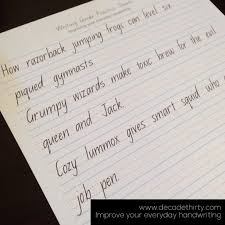 Writing Grade Practice Sheet
How razorback jumping frogs can level six
piqued gymnasts.
Grumpy wizards make toxic brew for the evil
queen and Jack.
Cozy lummox gives smart squid who
job pen.
www.decadethirty.com
Improve your everyday handwriting